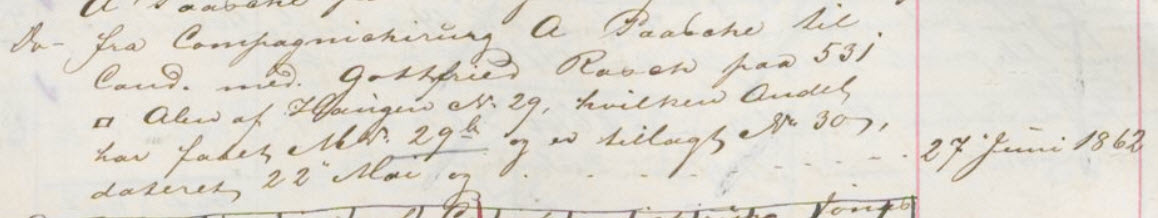 Do- fra Compagniechirurg A Paaske til
Cand. med. Gottfried Rasch paa 531
□ Alen af Haugen N. 29, hvilken Andel
har faaet M.N. 29b og er tillagt No 30,
dateret 22 Mai og - - - - - - 27 Juni 1862